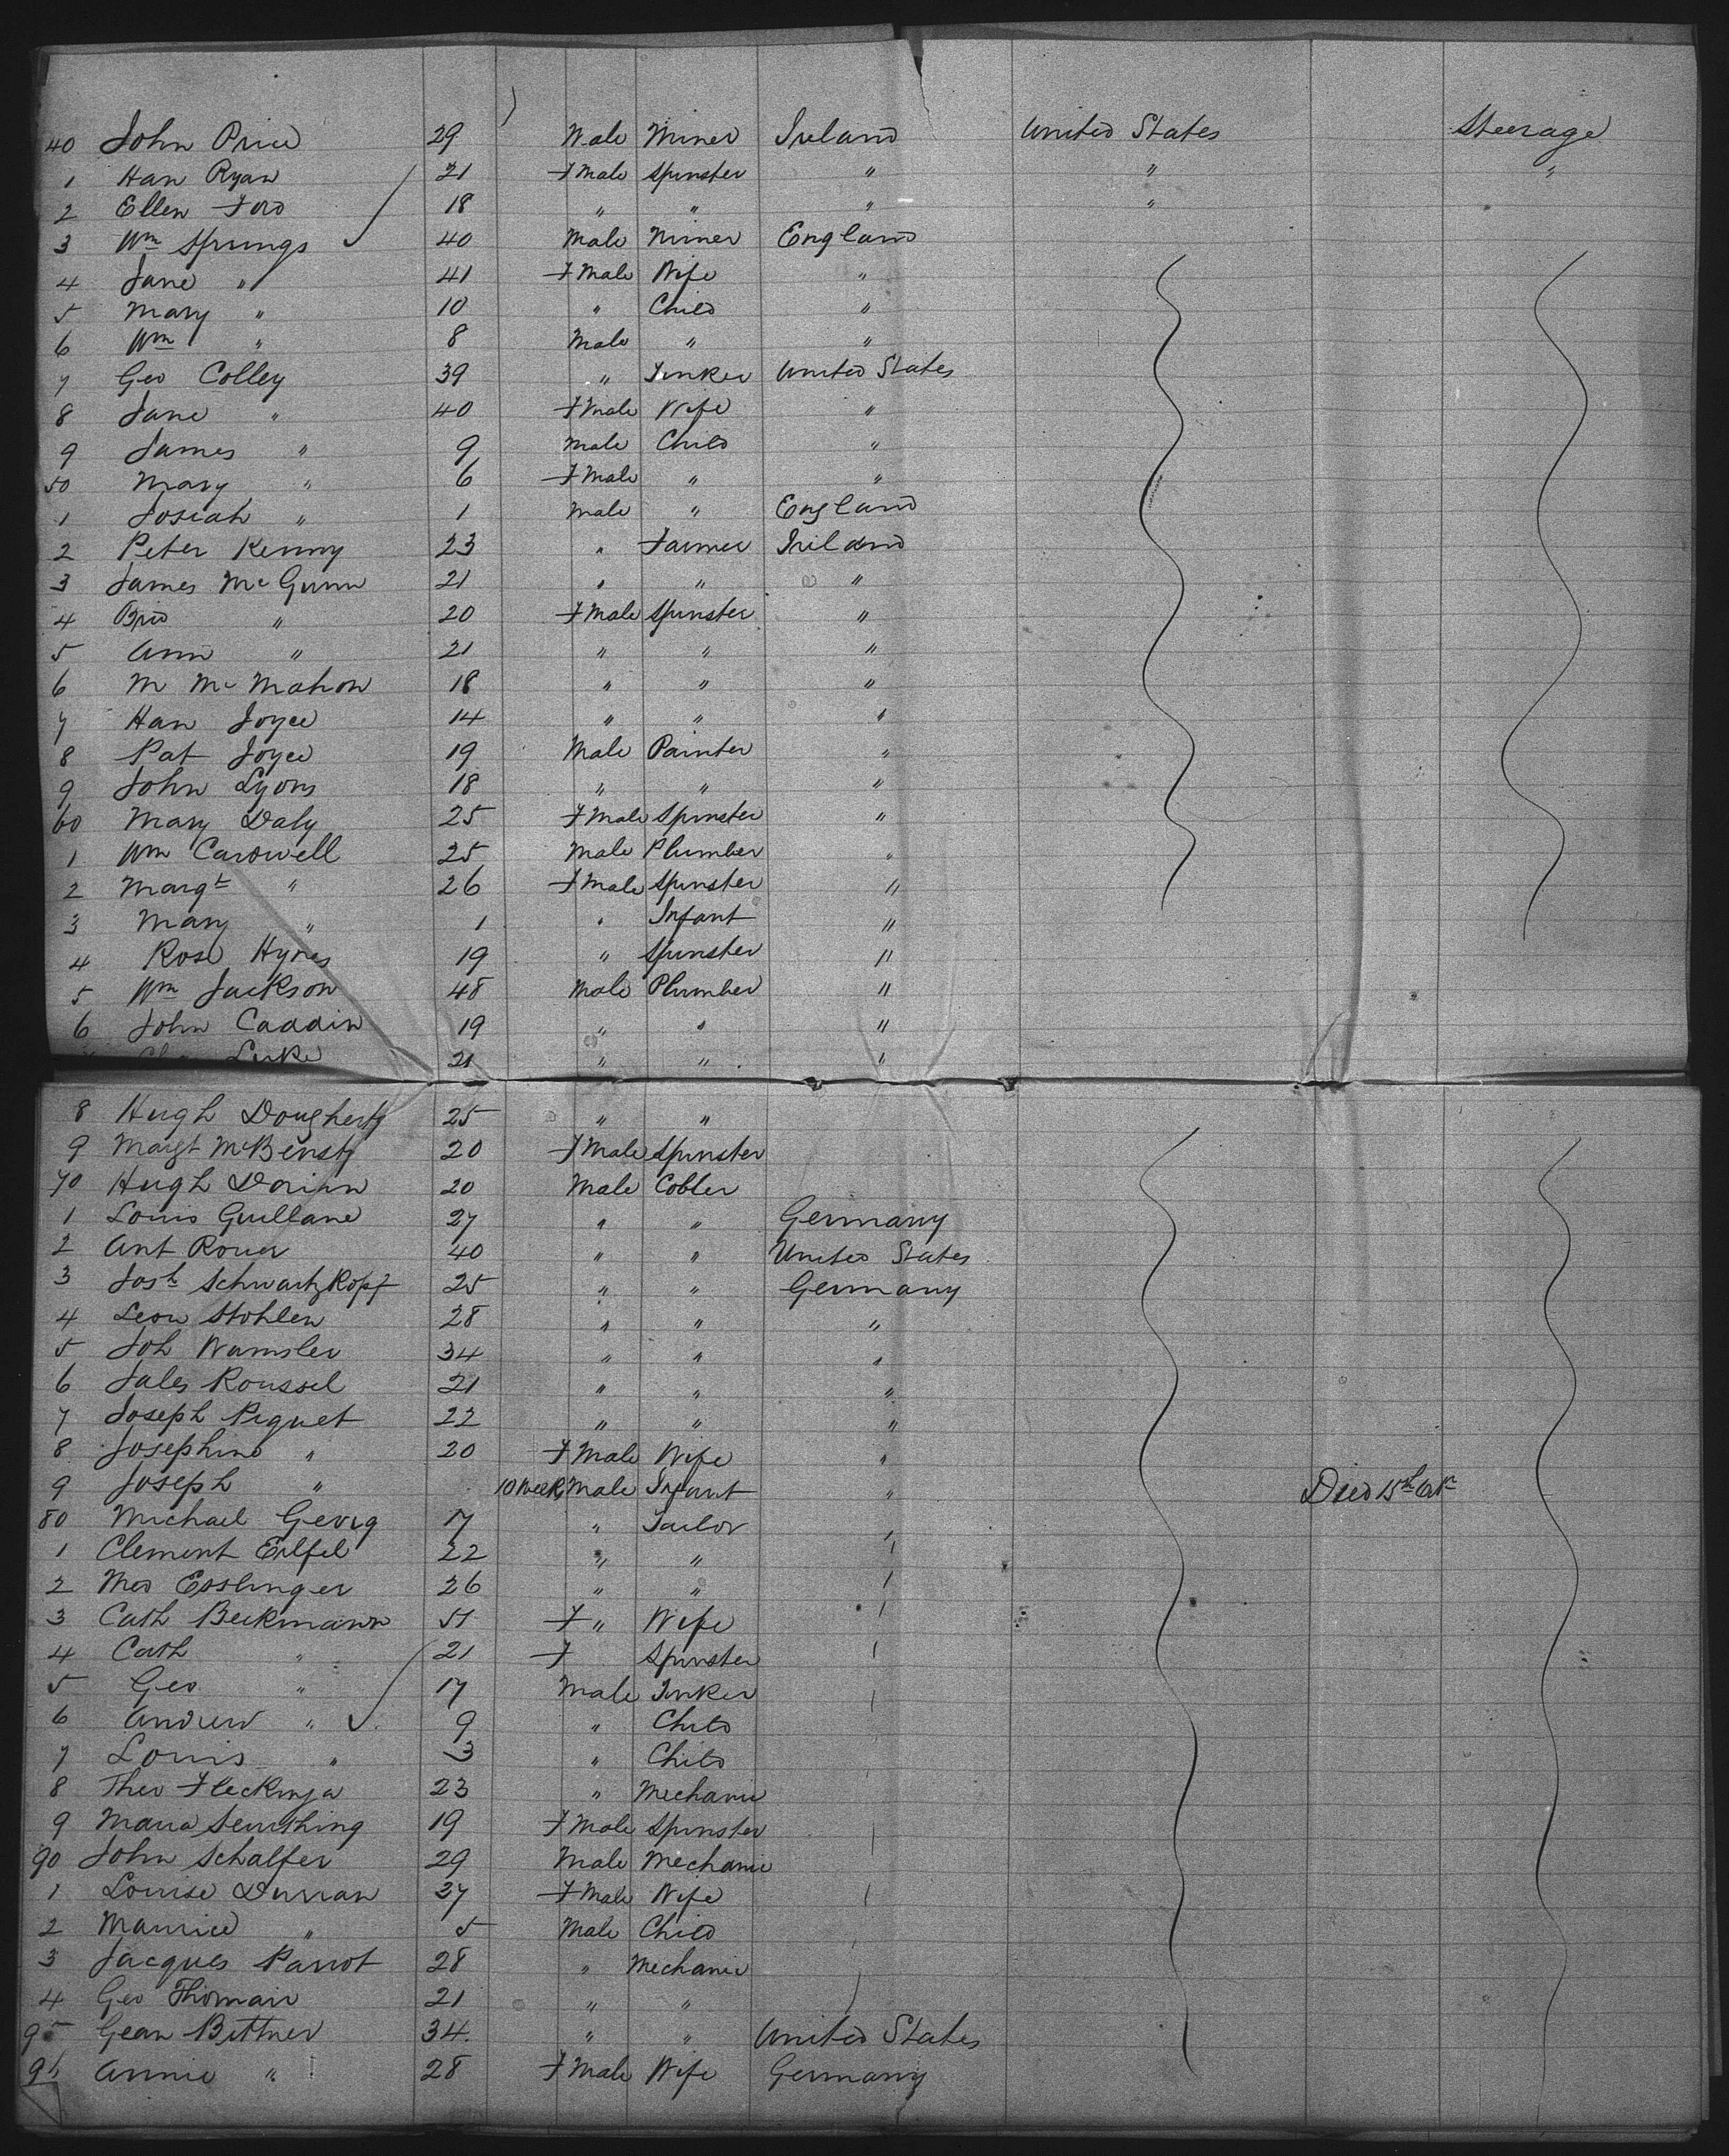 40 John Price 29 Male Miner Ireland United States Steerage
1 Han Ryan 21 Fmale Spinster " " "
2 Ellen Ford 18 " " " "
3 Wm Springs 40 Male Miner England
4 Jane " 41 Fmale Wife "
5 Mary " 10 " Child "
6 Wm " 8 Male " "
7 Geo Colley 39 " Tinker United States
8 Jane " 40 Fmale Wife "
9 James " 9 Male Child "
50 Mary " 6 Fmale " "
1 Josiah " 1 Male " England
2 Peter Kenny 23 " Farmer Ireland
3 James McGunn 21 " " "
4 Brid " 20 Fmale Spinster "
5 Ann " 21 " " "
6 M McMahon 18 " " "
7 Han Joyce 14 " " "
8 Pat Joyce 19 Male Painter "
9 John Lyons 18 " " "
60 Mary Daly 25 Fmale Spinster "
1 Wm Cardwell 25 Male Plumber "
2 Margt " 26 Fmale Spinster "
3 Mary " 1 " Infant "
4 Rose Hynes 19 " Spinster "
5 Wm Jackson 48 Male Plumber "
6 John Caddin 19 " " "
Luke 21 " " "
8 Hugh Dougherty 25 " "
9 Margt 20 Fmale Spinster
70 Hugh Dorian 20 Male Cobler
1 Louis Guillane 27 " " Germany
2 Ant Rouer 40 " " United States
3 Josh Schwartzkopf 25 " " Germany
4 Leon Stohlen 28 " " "
5 Joh Wamsler 34 " " "
6 Jules Roussel 21 " " "
7 Joseph Piquet 22 " " "
8 Josephine " 20 Fmale Wife "
9 Joseph " 10 Weeks Male Infant " Died 15th
80 Michael Georg 17 " Tailor "
1 Clement 22 " " "
2 Esslinger 26 " " "
3 Cath Beckmann 51 F " Wife "
4 Cath " 21 F Spinster
5 Geo " 17 Male Tinker
6 Andrew " 9 " Child
7 Louis " 3 " Child
8 Theo Fleckinja 23 " Mechanic
9 Maria 19 Fmale Spinster
90 John Schalfer 29 Male Mechanic
1 Louise Durran 27 Fmale Wife
2 Maurice " 5 Male Child
3 Jacques Parrot 28 " Mechanic
4 Geo Thomain 21 " "
95 Gean Bittner 34 " " United States
96 Annie " 28 Fmale Wife Germany